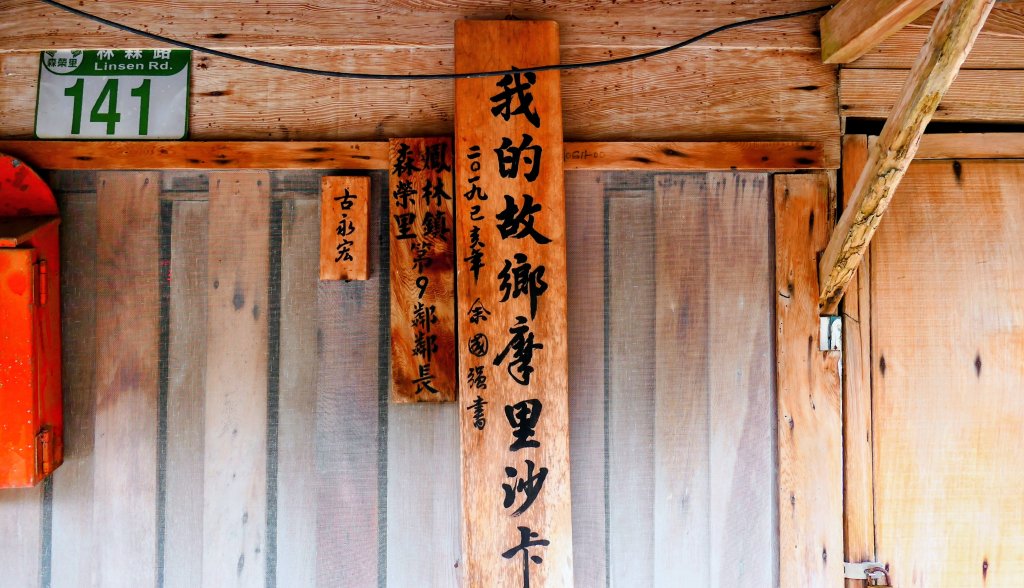 林森路
森榮里
Linsen Rd.
141
我的故鄉摩里沙卡
二〇一九己亥年 余國强書
鳳林鎮
森榮里
第9鄰鄰長
古永宏